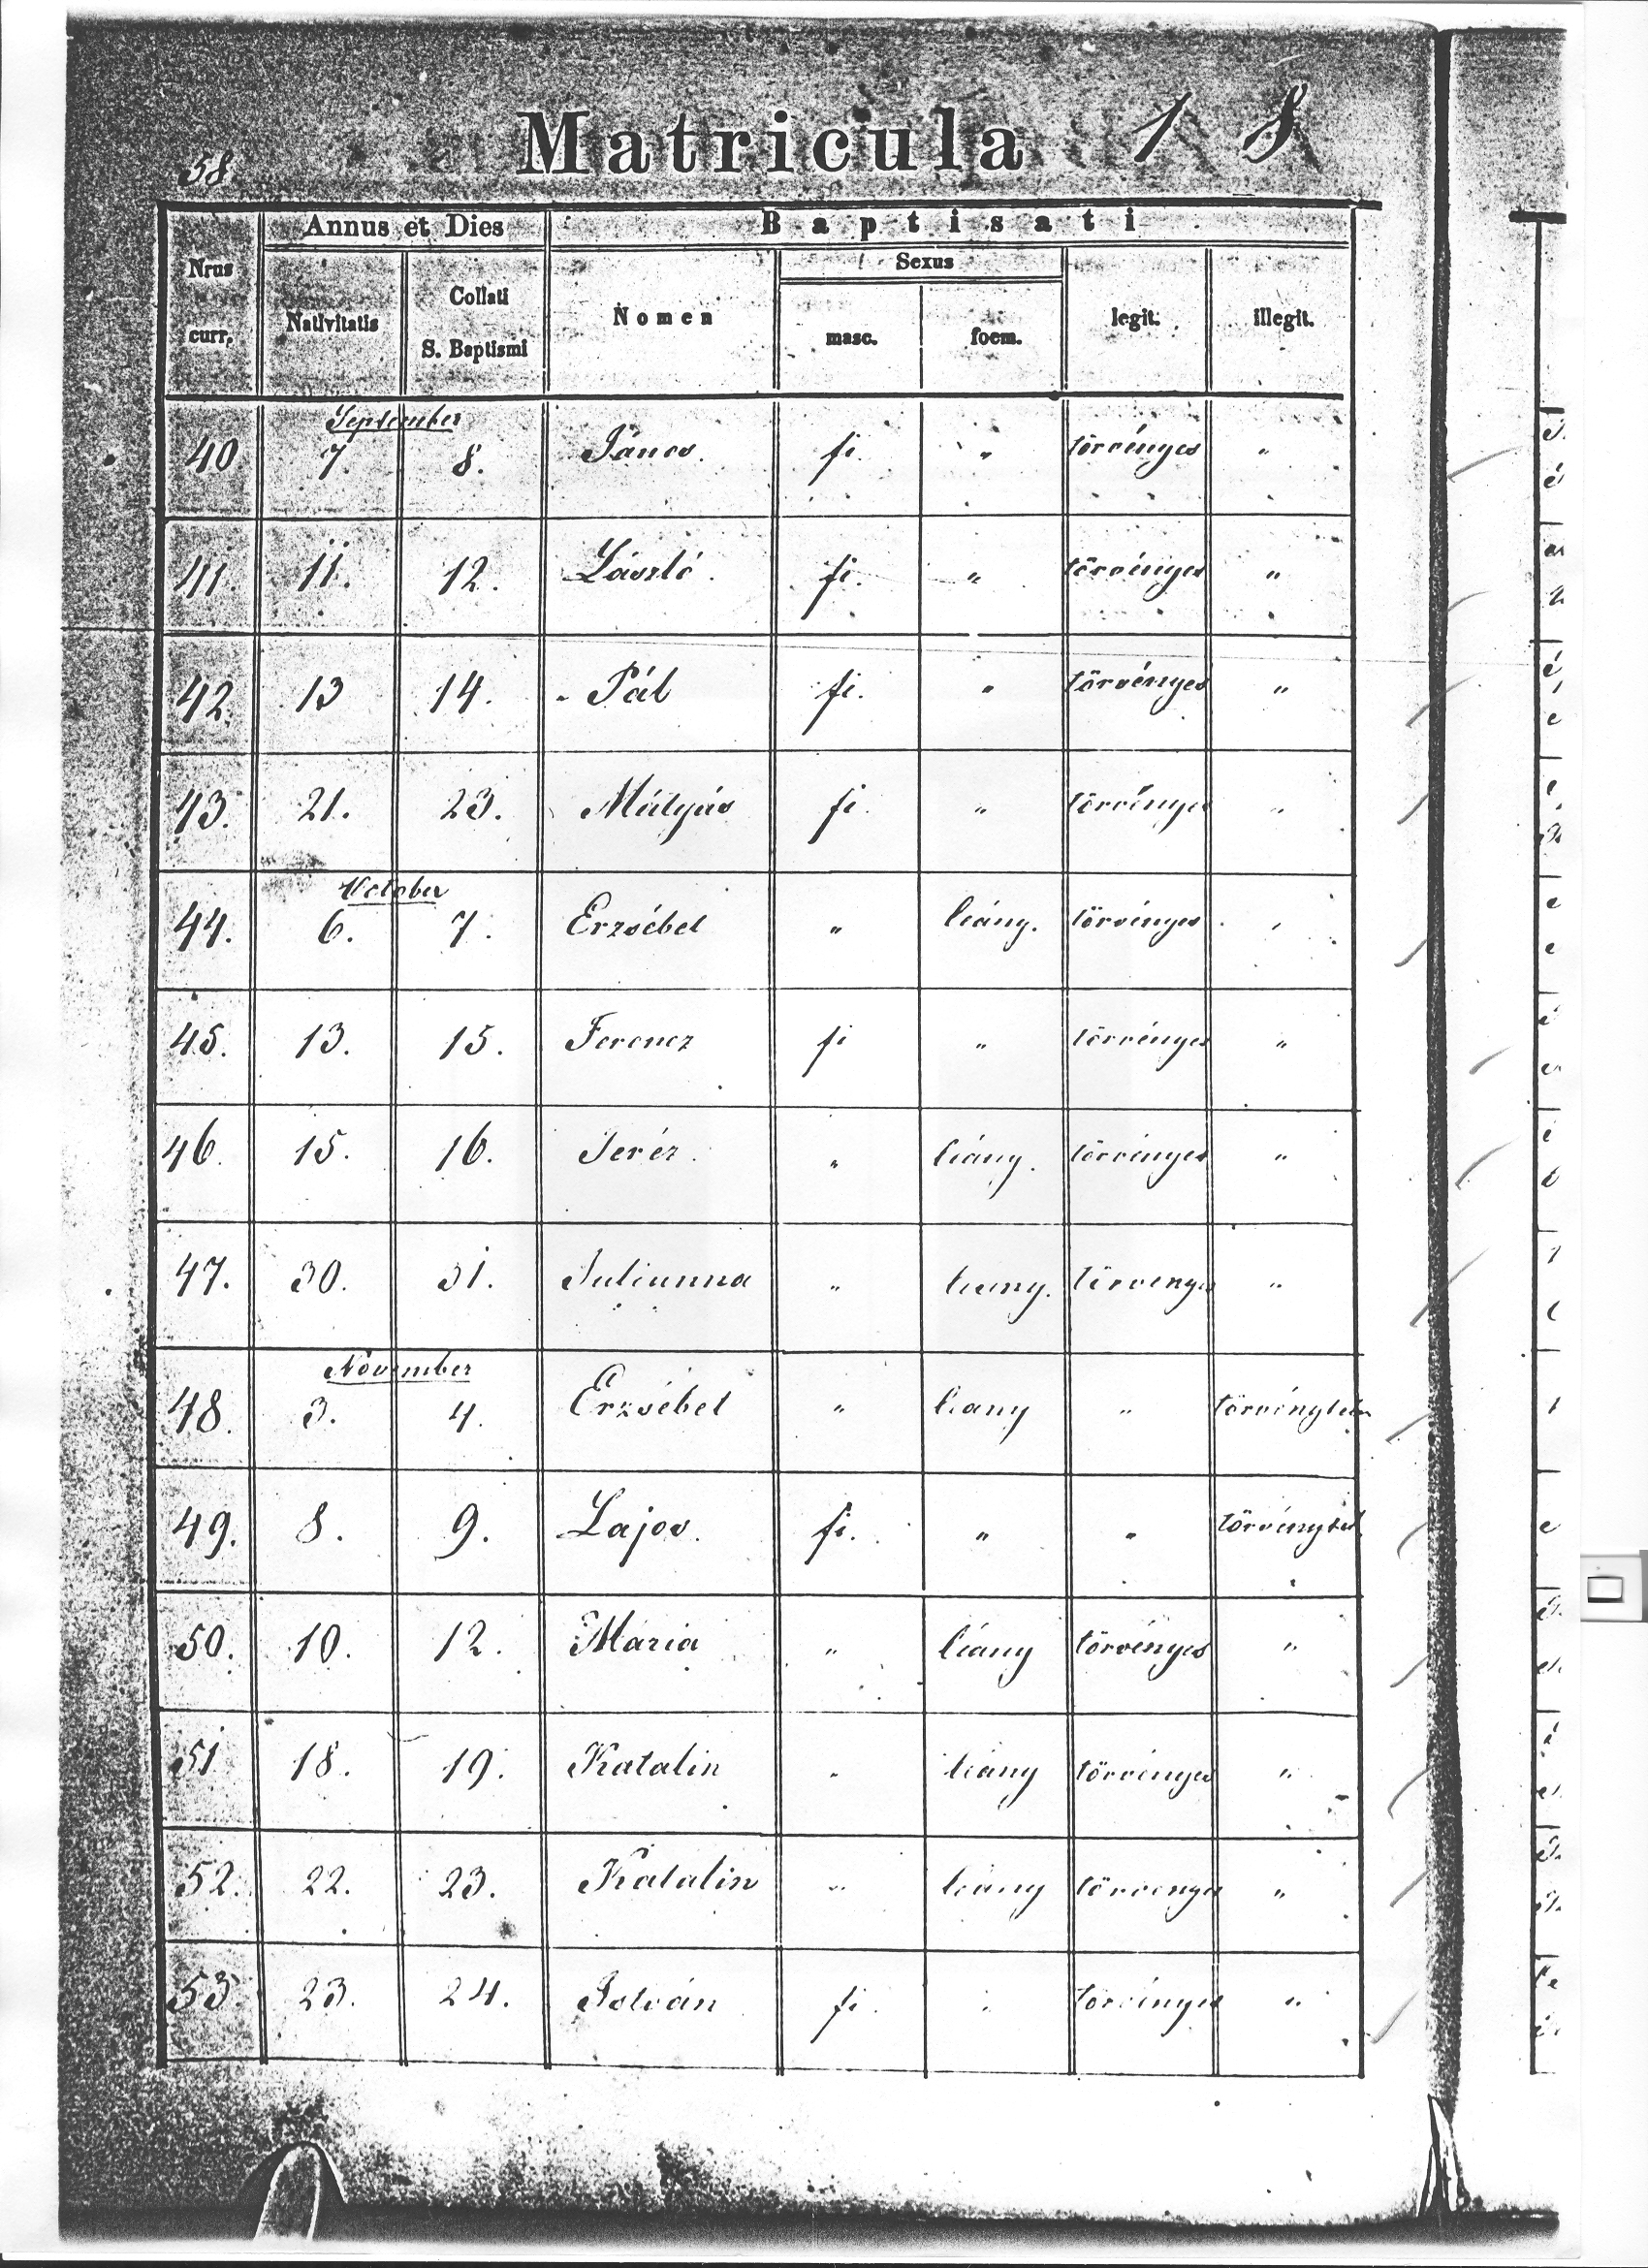 58 Matricula 1 8
Annus et Dies Baptisati
Nrus curr. Nativitatis Collati S. Baptismi Nomen Sexus masc. foem. legit. illegit.
September
40 7 8. János. fi. " törvényes "
41. 11. 12. László. fi. " törvényes "
42. 13 14. Pál fi. " törvényes "
43. 21. 23. Mátyás fi. " törvényes "
October
44. 6. 7. Erzsébet " leány. törvényes "
45. 13. 15. Ferencz fi " törvényes "
46. 15. 16. Teréz. " leány. törvényes "
47. 30. 31. Julianna " leany. törvenyes "
November
48. 3. 4. Erzsébet " leany " törvénytelen
49. 8. 9. Lajos. fi. " " törvénytel
50. 10. 12. Maria " leány törvényes "
51 18. 19. Katalin " leány törvényes "
52. 22. 23. Katalin " leány törvenyes "
53 23. 24. István fi. " törvényes "